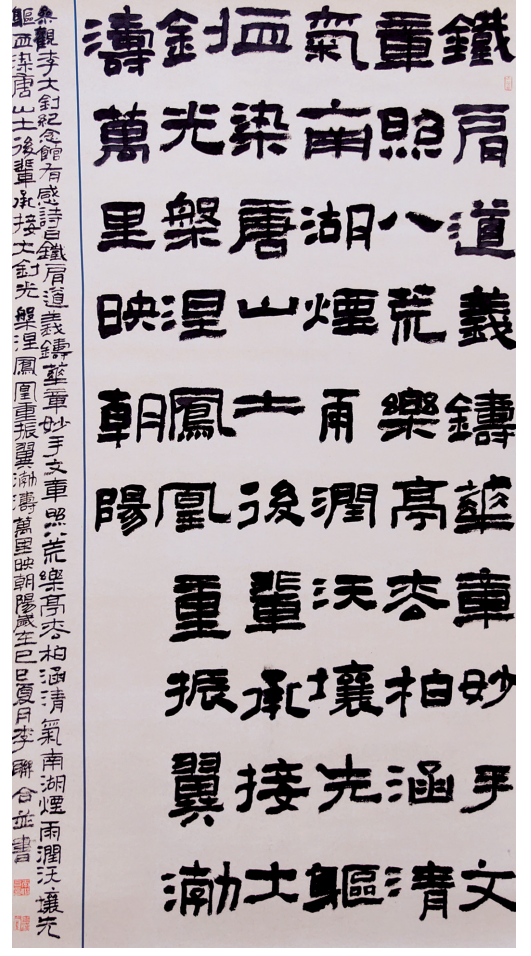 鐵肩道義鑄華章妙手文
章照八荒樂亭枩柏涵清
氣南湖煙雨潤沃壤先驅
血染唐山土後輩承接大
釗光槃涅鳳凰重振翼渤
濤萬里映朝陽
參觀李大釗紀念館有感詩曰鐵肩道義鑄華章妙手文章照荒樂亭枩柏涵清氣南湖煙雨潤沃壤先
驅血染唐山土後輩承接大釗光槃涅鳳凰重振翼渤濤萬里映朝陽歲在乙巳夏月李聯合並書